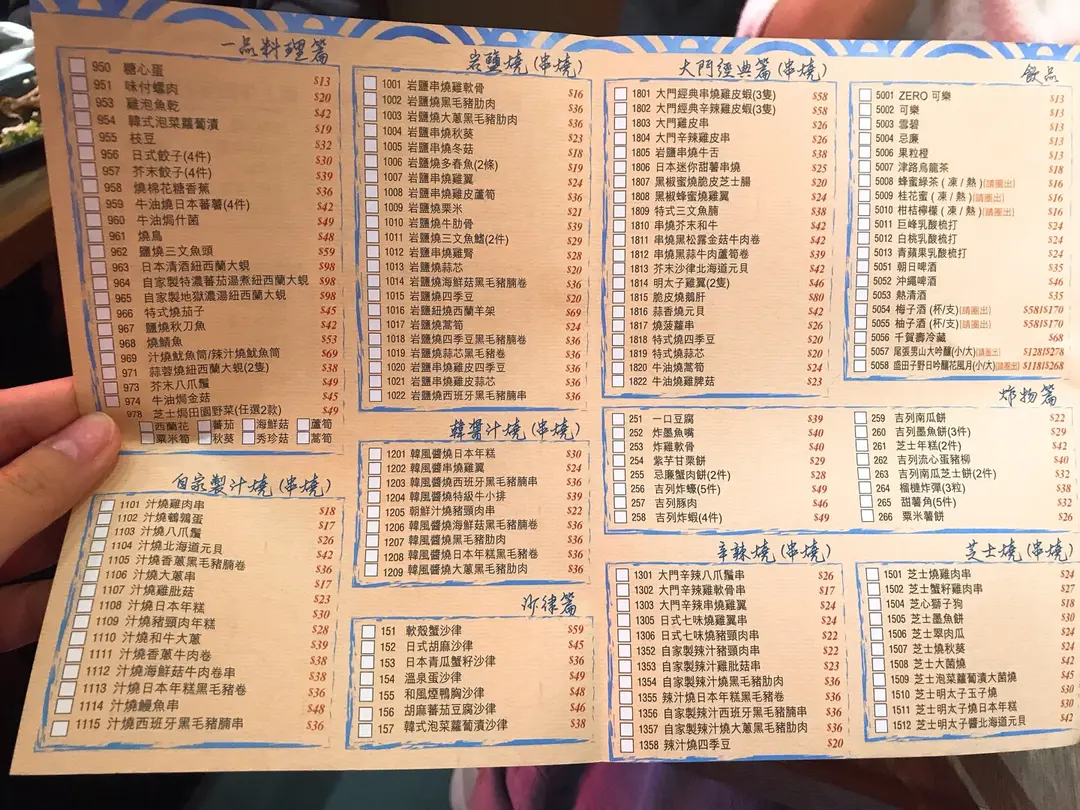 一品料理篇
950 糖心蛋 $13
951 味付螺肉 $20
953 雞泡魚乾 $42
954 韓式泡菜蘿蔔漬 $19
955 枝豆 $32
956 日式餃子(4件) $30
957 芥末餃子(4件) $39
958 燒棉花糖香蕉 $36
959 牛油燒日本蕃薯(4件) $42
960 牛油焗什菌 $49
961 燒鳥 $48
962 鹽燒三文魚頭 $59
963 日本清酒紐西蘭大蜆 $98
964 自家製特濃蕃茄湯煮紐西蘭大蜆 $98
965 自家製地獄濃湯紐西蘭大蜆 $98
966 特式燒茄子 $45
967 鹽燒秋刀魚 $42
968 燒鯖魚 $53
969 汁燒魷魚筒/辣汁燒魷魚筒 $69
971 蒜蓉燒紐西蘭大蜆(2隻) $38
973 芥末八爪鬚 $49
974 牛油焗金菇 $45
978 芝士焗田園野菜(任選2款) $49
西蘭花 蕃茄 海鮮菇 蘆筍
粟米筍 秋葵 秀珍菇 蒿筍
自家製汁燒(串燒)
1101 汁燒雞肉串 $18
1102 汁燒鵪鶉蛋 $17
1103 汁燒八爪鬚 $26
1104 汁燒北海道元貝 $42
1105 汁燒香蔥黑毛豬腩卷 $36
1106 汁燒大蔥串 $17
1107 汁燒雞肶菇 $23
1108 汁燒日本年糕 $30
1109 汁燒豬頸肉年糕 $28
1110 汁燒和牛大蔥 $39
1111 汁燒香蔥牛肉卷 $38
1112 汁燒海鮮菇牛肉卷串 $38
1113 汁燒日本年糕黑毛豬卷 $36
1114 汁燒鰻魚串 $48
1115 汁燒西班牙黑毛豬腩串 $36
岩鹽燒(串燒)
1001 岩鹽串燒雞軟骨 $16
1002 岩鹽燒黑毛豬肋肉 $36
1003 岩鹽燒大蔥黑毛豬肋肉 $36
1004 岩鹽串燒秋葵 $23
1005 岩鹽串燒冬菇 $18
1006 岩鹽燒多春魚(2條) $19
1007 岩鹽串燒雞翼 $24
1008 岩鹽串燒雞皮蘆筍 $36
1009 岩鹽燒粟米 $21
1010 岩鹽燒牛肋骨 $36
1011 岩鹽燒三文魚鰭(2件) $29
1012 岩鹽串燒雞腎 $28
1013 岩鹽燒蒜芯 $20
1014 岩鹽燒海鮮菇黑毛豬卷 $36
1015 岩鹽燒四季豆 $20
1016 岩鹽燒紐西蘭羊架 $69
1017 岩鹽燒蒿筍 $24
1018 岩鹽燒四季豆黑毛豬卷 $36
1019 岩鹽燒蒜芯黑毛豬卷 $36
1020 岩鹽燒雞皮四季豆 $36
1021 岩鹽燒雞皮蒜芯 $36
1022 岩鹽燒西班牙黑毛豬腩串 $36
韓醬汁燒(串燒)
1201 韓風醬燒日本年糕 $30
1202 韓風醬串燒雞翼 $24
1203 韓風醬燒西班牙黑毛豬腩串 $36
1204 韓風醬燒特級牛小排 $39
1205 朝鮮汁燒豬頸肉串 $22
1206 韓風醬燒海鮮菇黑毛豬腩卷 $36
1207 韓風醬燒黑毛豬肋肉 $36
1208 韓風醬燒日本年糕黑毛豬卷 $36
1209 韓風醬燒大蔥黑毛豬肋肉 $36
沙律篇
151 軟殼蟹沙律 $59
152 日式胡麻沙律 $45
153 日本青瓜蟹籽沙律 $36
154 溫泉蛋沙律 $49
155 和風煙鴨胸沙律 $48
156 胡麻蕃茄豆腐沙律 $46
157 韓式泡菜蘿蔔漬沙律 $38
大門經典篇(串燒)
1801 大門經典串燒雞皮蝦(3隻) $58
1802 大門經典辛辣雞皮蝦(3隻) $58
1803 大門雞皮串 $26
1804 大門辛辣雞皮串 $26
1805 岩鹽串燒牛舌 $38
1806 日本迷你甜薯串燒 $25
1807 黑椒蜜燒脆皮芝士腸 $20
1808 黑椒蜂蜜燒雞翼 $24
1809 特式三文魚腩 $38
1810 串燒芥末和牛 $42
1811 串燒黑松露金菇牛肉卷 $42
1812 串燒黑蒜牛肉蘆筍卷 $39
1813 芥末沙律北海道元貝 $42
1814 明太子雞翼(2隻) $46
1815 脆皮燒鵝肝 $80
1816 蒜香燒元貝 $42
1817 燒菠蘿串 $26
1818 特式燒四季豆 $20
1819 特式燒蒜芯 $20
1820 牛油燒蒿筍 $24
1822 牛油燒雞脾菇 $23
飲品
5001 ZERO 可樂 $13
5002 可樂 $13
5003 雪碧 $13
5004 忌廉 $13
5006 果粒橙 $13
5007 津路烏龍茶 $18
5008 蜂蜜綠茶(凍/熱)(請圈出) $16
5009 桂花蜜(凍/熱)(請圈出) $16
5010 柑桔檸檬(凍/熱)(請圈出) $16
5011 巨峰乳酸梳打 $24
5012 白桃乳酸梳打 $24
5013 青蘋果乳酸梳打 $24
5051 朝日啤酒 $35
5052 沖繩啤酒 $46
5053 熱清酒 $35
5054 梅子酒(杯/支)(請圈出) $58/$170
5055 柚子酒(杯/支)(請圈出) $58/$170
5056 千賀壽冷藏 $68
5057 尾張男山大吟釀(小/大)(請圈出) $128/$278
5058 盛田子野日吟釀花風月(小/大)(請圈出) $118/$268
炸物篇
251 一口豆腐 $39
252 炸墨魚嘴 $40
253 炸雞軟骨 $40
254 紫芋甘栗餅 $29
255 忌廉蟹肉餅(2件) $28
256 吉列炸蠔(5件) $49
257 吉列豚肉 $46
258 吉列炸蝦(4件) $49
259 吉列南瓜餅 $22
260 吉列墨魚餅(3件) $29
261 芝士年糕(2件) $42
262 吉列流心蛋豬柳 $40
263 吉列南瓜芝士餅(2件) $32
264 榴槤炸彈(3粒) $38
265 甜薯角(5件) $32
266 粟米薯餅 $26
辛辣燒(串燒)
1301 大門辛辣八爪鬚串 $26
1302 大門辛辣雞軟骨串 $17
1303 大門辛辣串燒雞翼 $24
1305 日式七味燒雞翼串 $24
1306 日式七味燒豬頸肉串 $22
1352 自家製辣汁豬頸肉串 $22
1353 自家製辣汁雞肶菇串 $23
1354 自家製辣汁黑毛豬肋肉 $36
1355 辣汁燒日本年糕黑毛豬卷 $36
1356 自家製辣汁西班牙黑毛豬腩串 $36
1357 自家製辣汁大蔥黑毛豬肋肉 $36
1358 辣汁燒四季豆 $20
芝士燒(串燒)
1501 芝士燒雞肉串 $24
1502 芝士蟹籽雞肉串 $27
1504 芝心獅子狗 $18
1505 芝士墨魚餅 $30
1506 芝士翠肉瓜 $24
1507 芝士燒秋葵 $24
1508 芝士大菌燒 $42
1509 芝士泡菜蘿蔔漬大菌燒 $45
1510 芝士明太子玉子燒 $30
1511 芝士明太子燒日本年糕 $30
1512 芝士明太子醬北海道元貝 $42